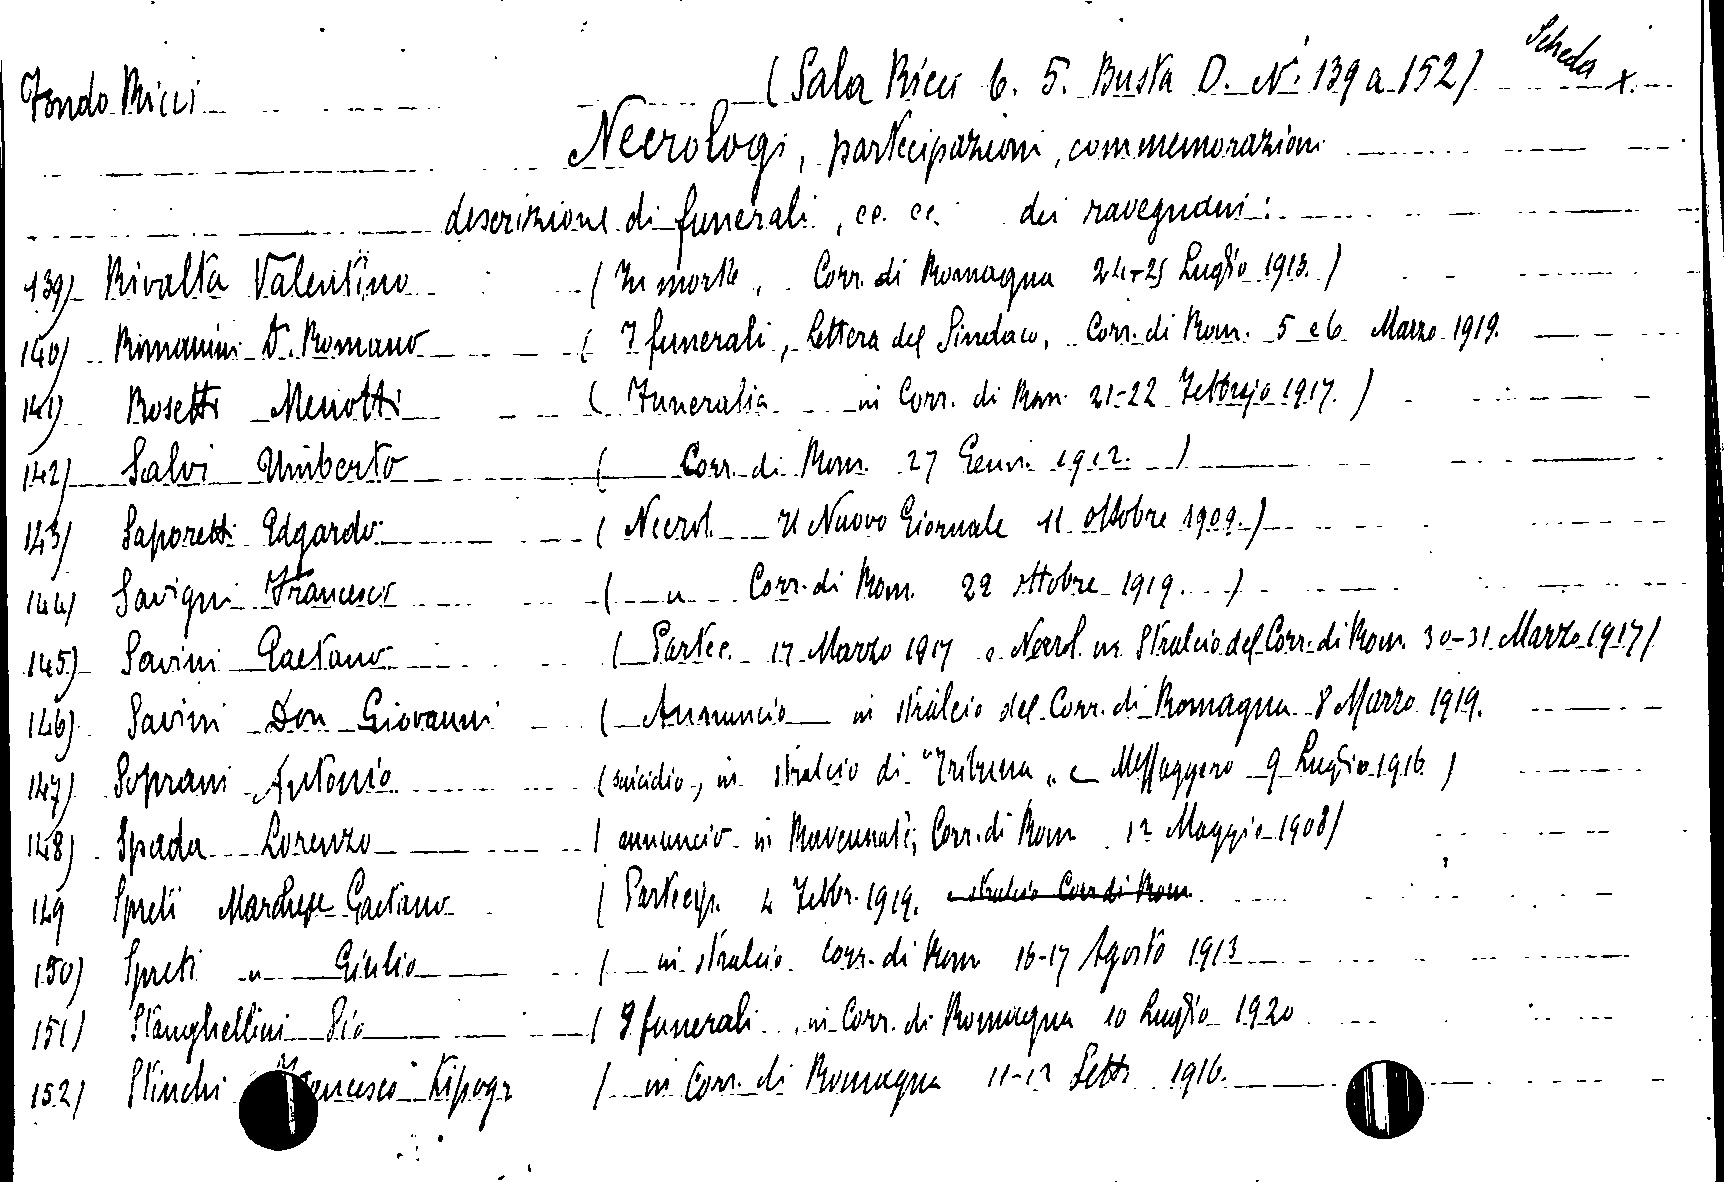 Scheda X.
Fondo Ricci (Sala Ricci 6. 5. Busta D. N.i 139 a 152)
Necrologi, partecipazioni, commemorazioni
descrizione di funerali, ec. ec. dei ravegnani:
139) Rivalta Valentino (In morte, Corr. di Romagna 24-25 Luglio 1913.)
140) Romanini D. Romano ( I funerali, lettera del Sindaco, Corr. di Rom. 5 e 6 Marzo 1919.
141) Rosetti Menotti ( Funeralia in Corr. di Rom. 21-22 Febbrajo 1917.)
142) Salvi Umberto ( Corr. di Rom. 27 Genn. 1912. )
143) Saporetti Edgardo ( Necrol. Il Nuovo Giornale 11 ottobre 1909.)
144) Savigni Francesco ( " Corr. di Rom. 22 ottobre 1919. )
145) Savini Gaetano ( Partec. 17 Marzo 1917 e Necrol. in Stralcio del Corr. di Rom. 30-31 Marzo 1917)
146) Savini Don Giovanni ( Annuncio in stralcio del Corr. di Romagna 8 Marzo 1919.
147) Soprani Antonio (suicidio, in stralcio di "Tribuna" e Messaggero 9 Luglio 1916 )
148) Spada Lorenzo ( annuncio in Ravennate, Corr. di Rom 12 Maggio 1908)
149 Spreti Marchese Gaetano ( Partecip. 4 Febbr. 1919. e stralcio Corr di Rom.
150) Spreti " Giulio ( in stralcio Corr. di Rom 16-17 Agosto 1913
151) Stanghellini Pio ( I funerali in Corr. di Romagna 10 Luglio 1920
152) Stinchi Francesco tipogr ( in Corr. di Romagna 11-12 Sett. 1916.